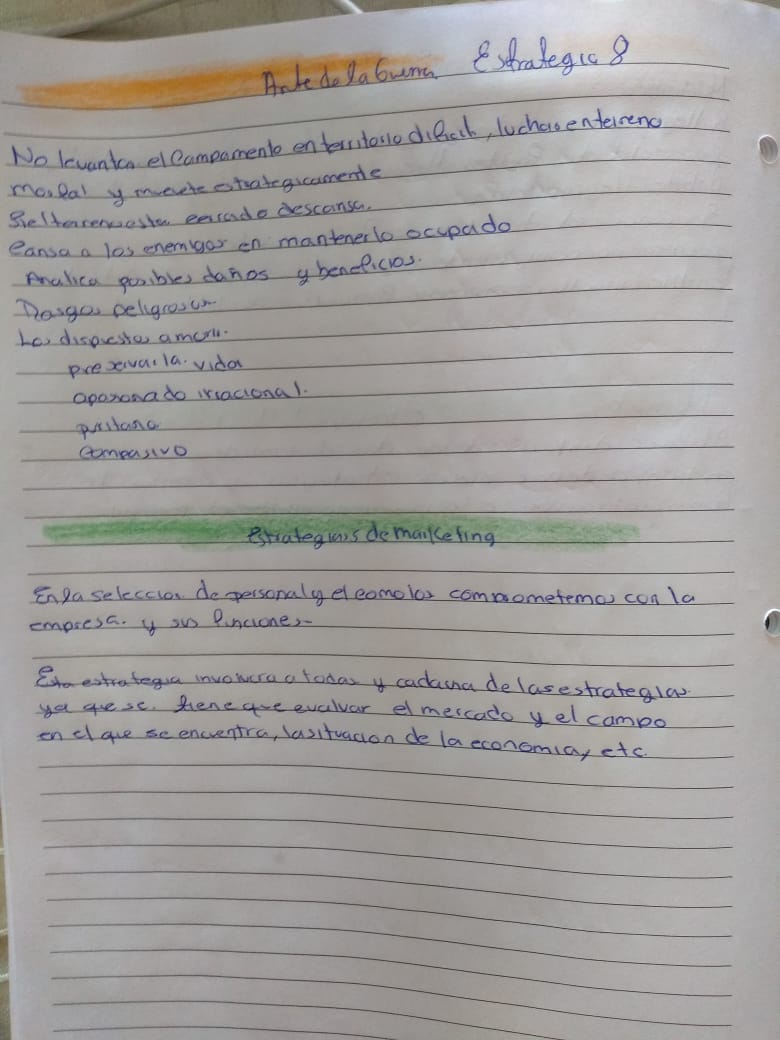 Arte de la Guerra Estrategia 8
No levantar el Campamento en territorio dificil, luchar en terreno
mortal y muevete estrategicamente
Si el terreno esta cercado descansa.
Cansa a los enemigos en mantenerlo ocupado
Analica posibles daños y beneficios.
Rasgos peligrosos
Los dispuestos a morir.
preservar la vida
apasonado irracional.
puritano
Compasivo
Estrategias de marketing
En la seleccion de personal y el como los comprometemos con la
empresa. y sus funciones-
Esta estrategia involucra a todas y cada una de las estrategias
ya que se tiene que evaluar el mercado y el campo
en el que se encuentra, la situacion de la economia, etc.